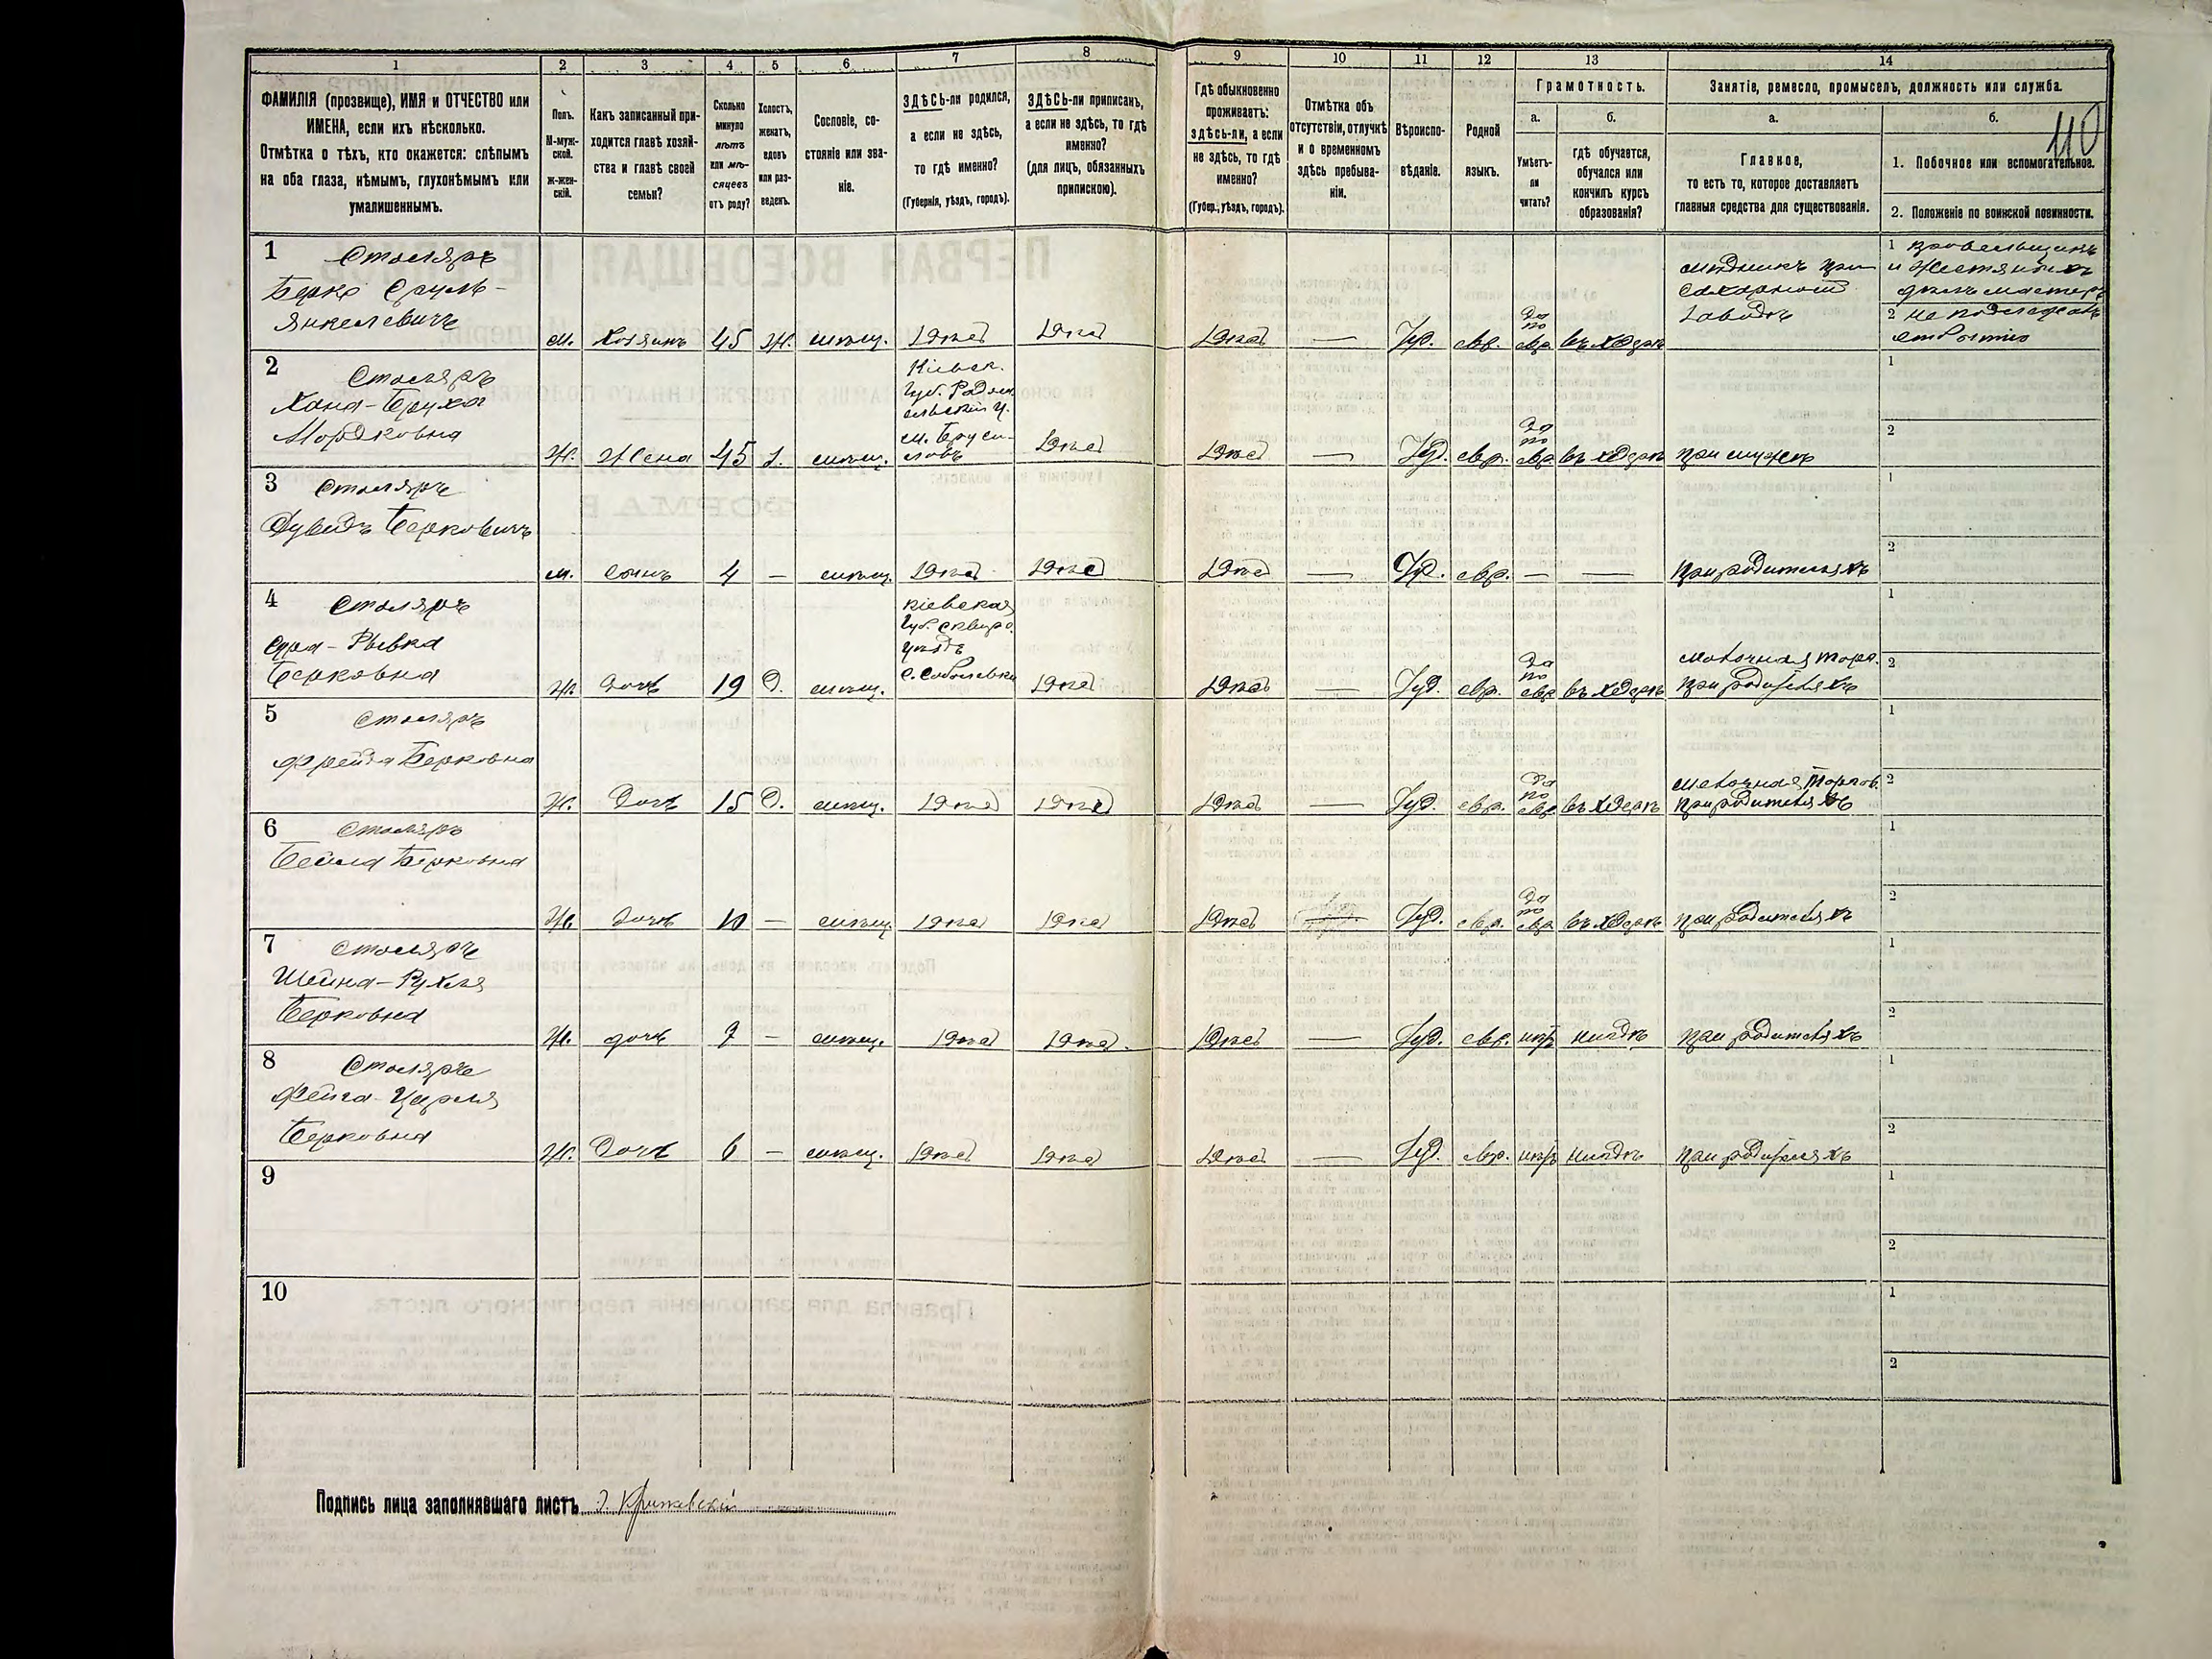 1 2 3 4 5 6 7 8 9 10 11 12 13 14
ФАМИЛІЯ (прозвище), ИМЯ и ОТЧЕСТВО или
ИМЕНА, если ихъ нѣсколько.
Отмѣтка о тѣхъ, кто окажется: слѣпымъ
на оба глаза, нѣмымъ, глухонѣмымъ или
умалишеннымъ.
Полъ.
М-муж-
ской.
ж-жен-
скій.
Какъ записанный при-
ходится главѣ хозяй-
ства и главѣ своей
семьи?
Сколько
минуло
лѣтъ
или мѣ-
сяцевъ
отъ роду?
Холостъ,
женатъ,
вдовъ
или раз-
веденъ.
Сословіе, со-
стояніе или зва-
ніе.
ЗДѢСЬ-ли родился,
а если не здѣсь,
то гдѣ именно?
(Губернія, уѣздъ, городъ).
ЗДѢСЬ-ли приписанъ,
а если не здѣсь, то гдѣ
именно?
(для лицъ, обязанныхъ
припискою).
Гдѣ обыкновенно
проживаетъ:
здѣсь-ли, а если
не здѣсь, то гдѣ
именно?
(Губер., уѣздъ, городъ).
Отмѣтка объ
отсутствіи, отлучкѣ
и о временномъ
здѣсь пребыва-
ніи.
Вѣроиспо-
вѣданіе.
Родной
языкъ.
Грамотность.
а.
Умѣетъ-
ли
читать?
б.
гдѣ обучается,
обучался или
кончилъ курсъ
образованія?
Занятіе, ремесло, промыселъ, должность или служба.
а.
Главное,
то есть то, которое доставляетъ
главныя средства для существованія.
б.
110
1. Побочное или вспомогательное.
2. Положеніе по воинской повинности.
1 Столяръ
Берко Сруль-
Янкелевичъ
м. Хозяинъ 45 Ж. мѣщ. Здѣсь Здѣсь Здѣсь — Іуд. евр.
да
по
евр. въ хедерѣ
мѣдникъ при
сахарномъ
заводѣ
1 кровельщикъ
и жестяныхъ
дѣлъ мастеръ
2 не подлежитъ
2 Столяръ
Хана-Бруха
Мордковна
Ж. Жена 45 З. мѣщ.
Кіевск.
губ. Радом
ысльскій у.
м. Бруси-
ловъ
Здѣсь Здѣсь — Іуд. евр.
да
по
евр. въ хедерѣ при мужѣ
1
2
3 Столяръ
Дувидъ Берковичъ
м. Сынъ 4 — мѣщ. Здѣсь Здѣсь Здѣсь — Іуд. евр. — — При родителяхъ
1
2
4 Столяръ
Сура-Рывка
Берковна
Ж. Дочь 19 Д. мѣщ.
Кіевская
губ. Сквир.
уѣздъ
с. Соболевка
Здѣсь Здѣсь — Іуд. евр.
да
по
евр. въ хедерѣ
мелочная торг.
при родителяхъ
1
2
5 Столяръ
Фрейда Берковна
Ж. Дочь 15 Д. мѣщ. Здѣсь Здѣсь Здѣсь — Іуд. евр.
да
по
евр. въ хедерѣ
мелочная торгов.
при родителяхъ
1
2
6 Столяръ
Бейла Берковна
Ж. Дочь 10 — мѣщ. Здѣсь Здѣсь Здѣсь Іуд. евр.
да
по
евр. въ хедерѣ при родителяхъ
1
2
7 Столяръ
Шейна-Рухля
Берковна
Ж. дочь 7 — мѣщ. Здѣсь Здѣсь. Здѣсь — Іуд. евр. нѣтъ нигдѣ при родителяхъ
1
2
8 Столяръ
Фейга-Цирля
Берковна
Ж. Дочь 6 — мѣщ. Здѣсь Здѣсь Здѣсь — Іуд. евр. нѣтъ нигдѣ при родителяхъ
1
2
9
1
2
10
1
2
Подпись лица заполнявшаго листъ